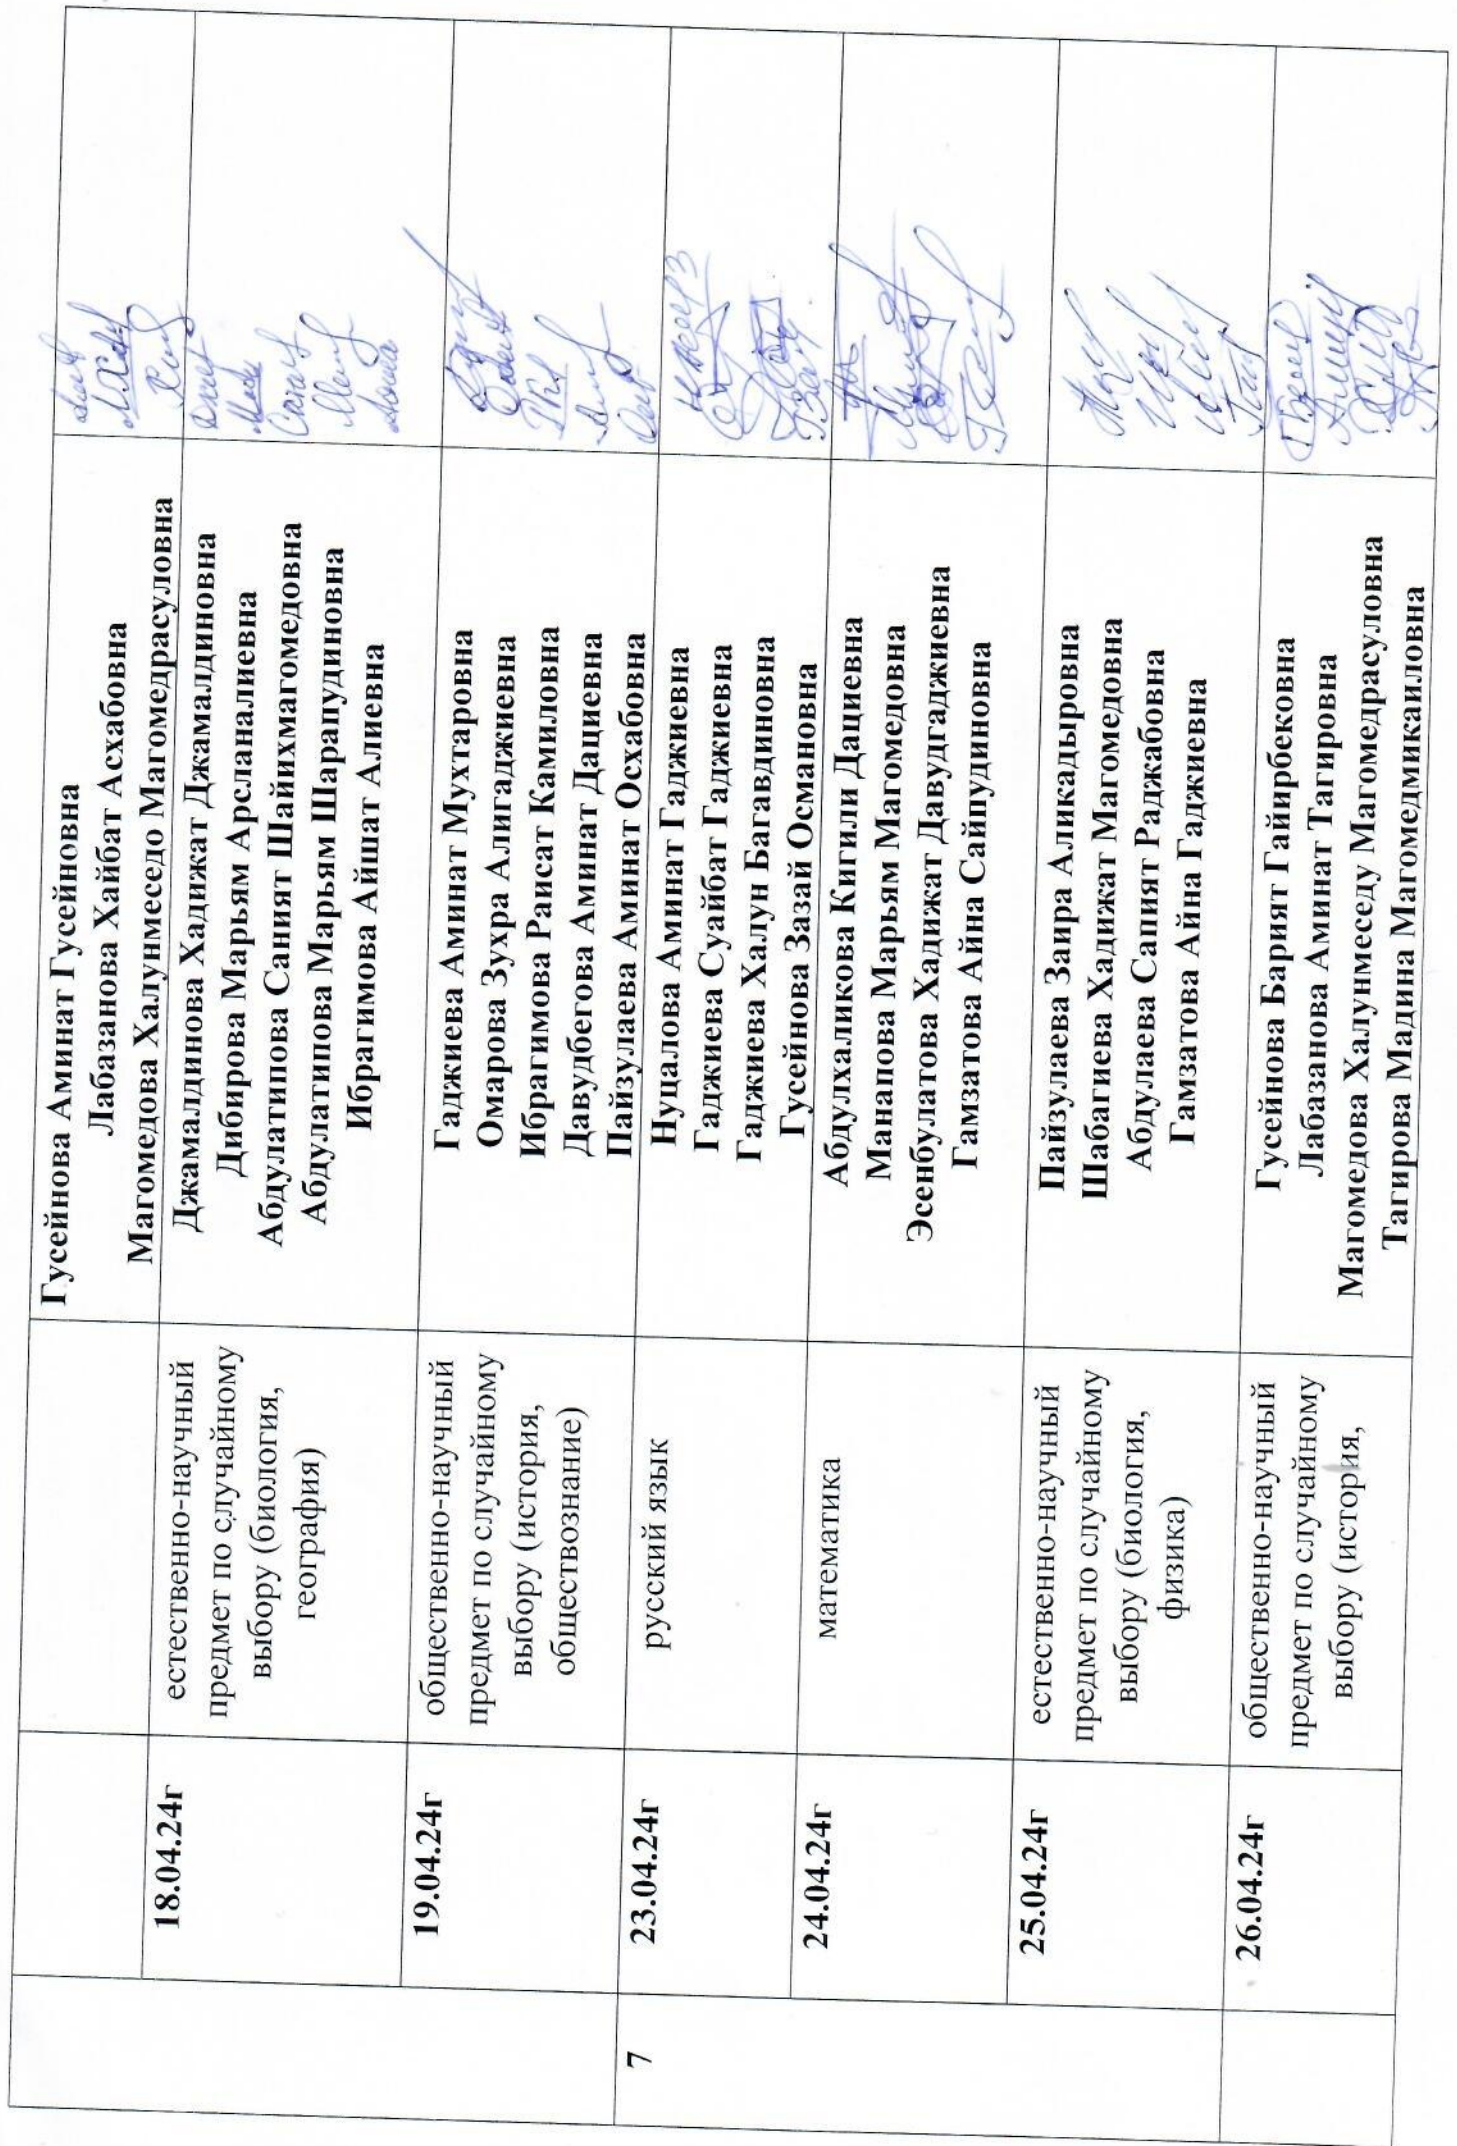 Гусейнова Аминат Гусейновна
Лабазанова Хайбат Асхабовна
Магомедова Халунмеседо Магомедрасуловна
18.04.24г
естественно-научный
предмет по случайному
выбору (биология,
география)
Джамалдинова Хадижат Джамалдиновна
Дибирова Марьям Арсланалиевна
Абдулатипова Саният Шайихмагомедовна
Абдулатипова Марьям Шарапудиновна
Ибрагимова Айшат Алиевна
19.04.24г
общественно-научный
предмет по случайному
выбору (история,
обществознание)
Гаджиева Аминат Мухтаровна
Омарова Зухра Алигаджиевна
Ибрагимова Раисат Камиловна
Давудбегова Аминат Дациевна
Пайзулаева Аминат Осхабовна
7
23.04.24г
русский язык
Нуцалова Аминат Гаджиевна
Гаджиева Суайбат Гаджиевна
Гаджиева Халун Багавдиновна
Гусейнова Зазай Османовна
24.04.24г
математика
Абдулхаликова Кигили Дациевна
Манапова Марьям Магомедовна
Эсенбулатова Хадижат Давудгаджиевна
Гамзатова Айна Сайпудиновна
25.04.24г
естественно-научный
предмет по случайному
выбору (биология,
физика)
Пайзулаева Заира Аликадыровна
Шабагиева Хадижат Магомедовна
Абдулаева Сапият Раджабовна
Гамзатова Айна Гаджиевна
26.04.24г
общественно-научный
предмет по случайному
выбору (история,
Гусейнова Барият Гайирбековна
Лабазанова Аминат Тагировна
Магомедова Халунмеседу Магомедрасуловна
Тагирова Мадина Магомедмикаиловна